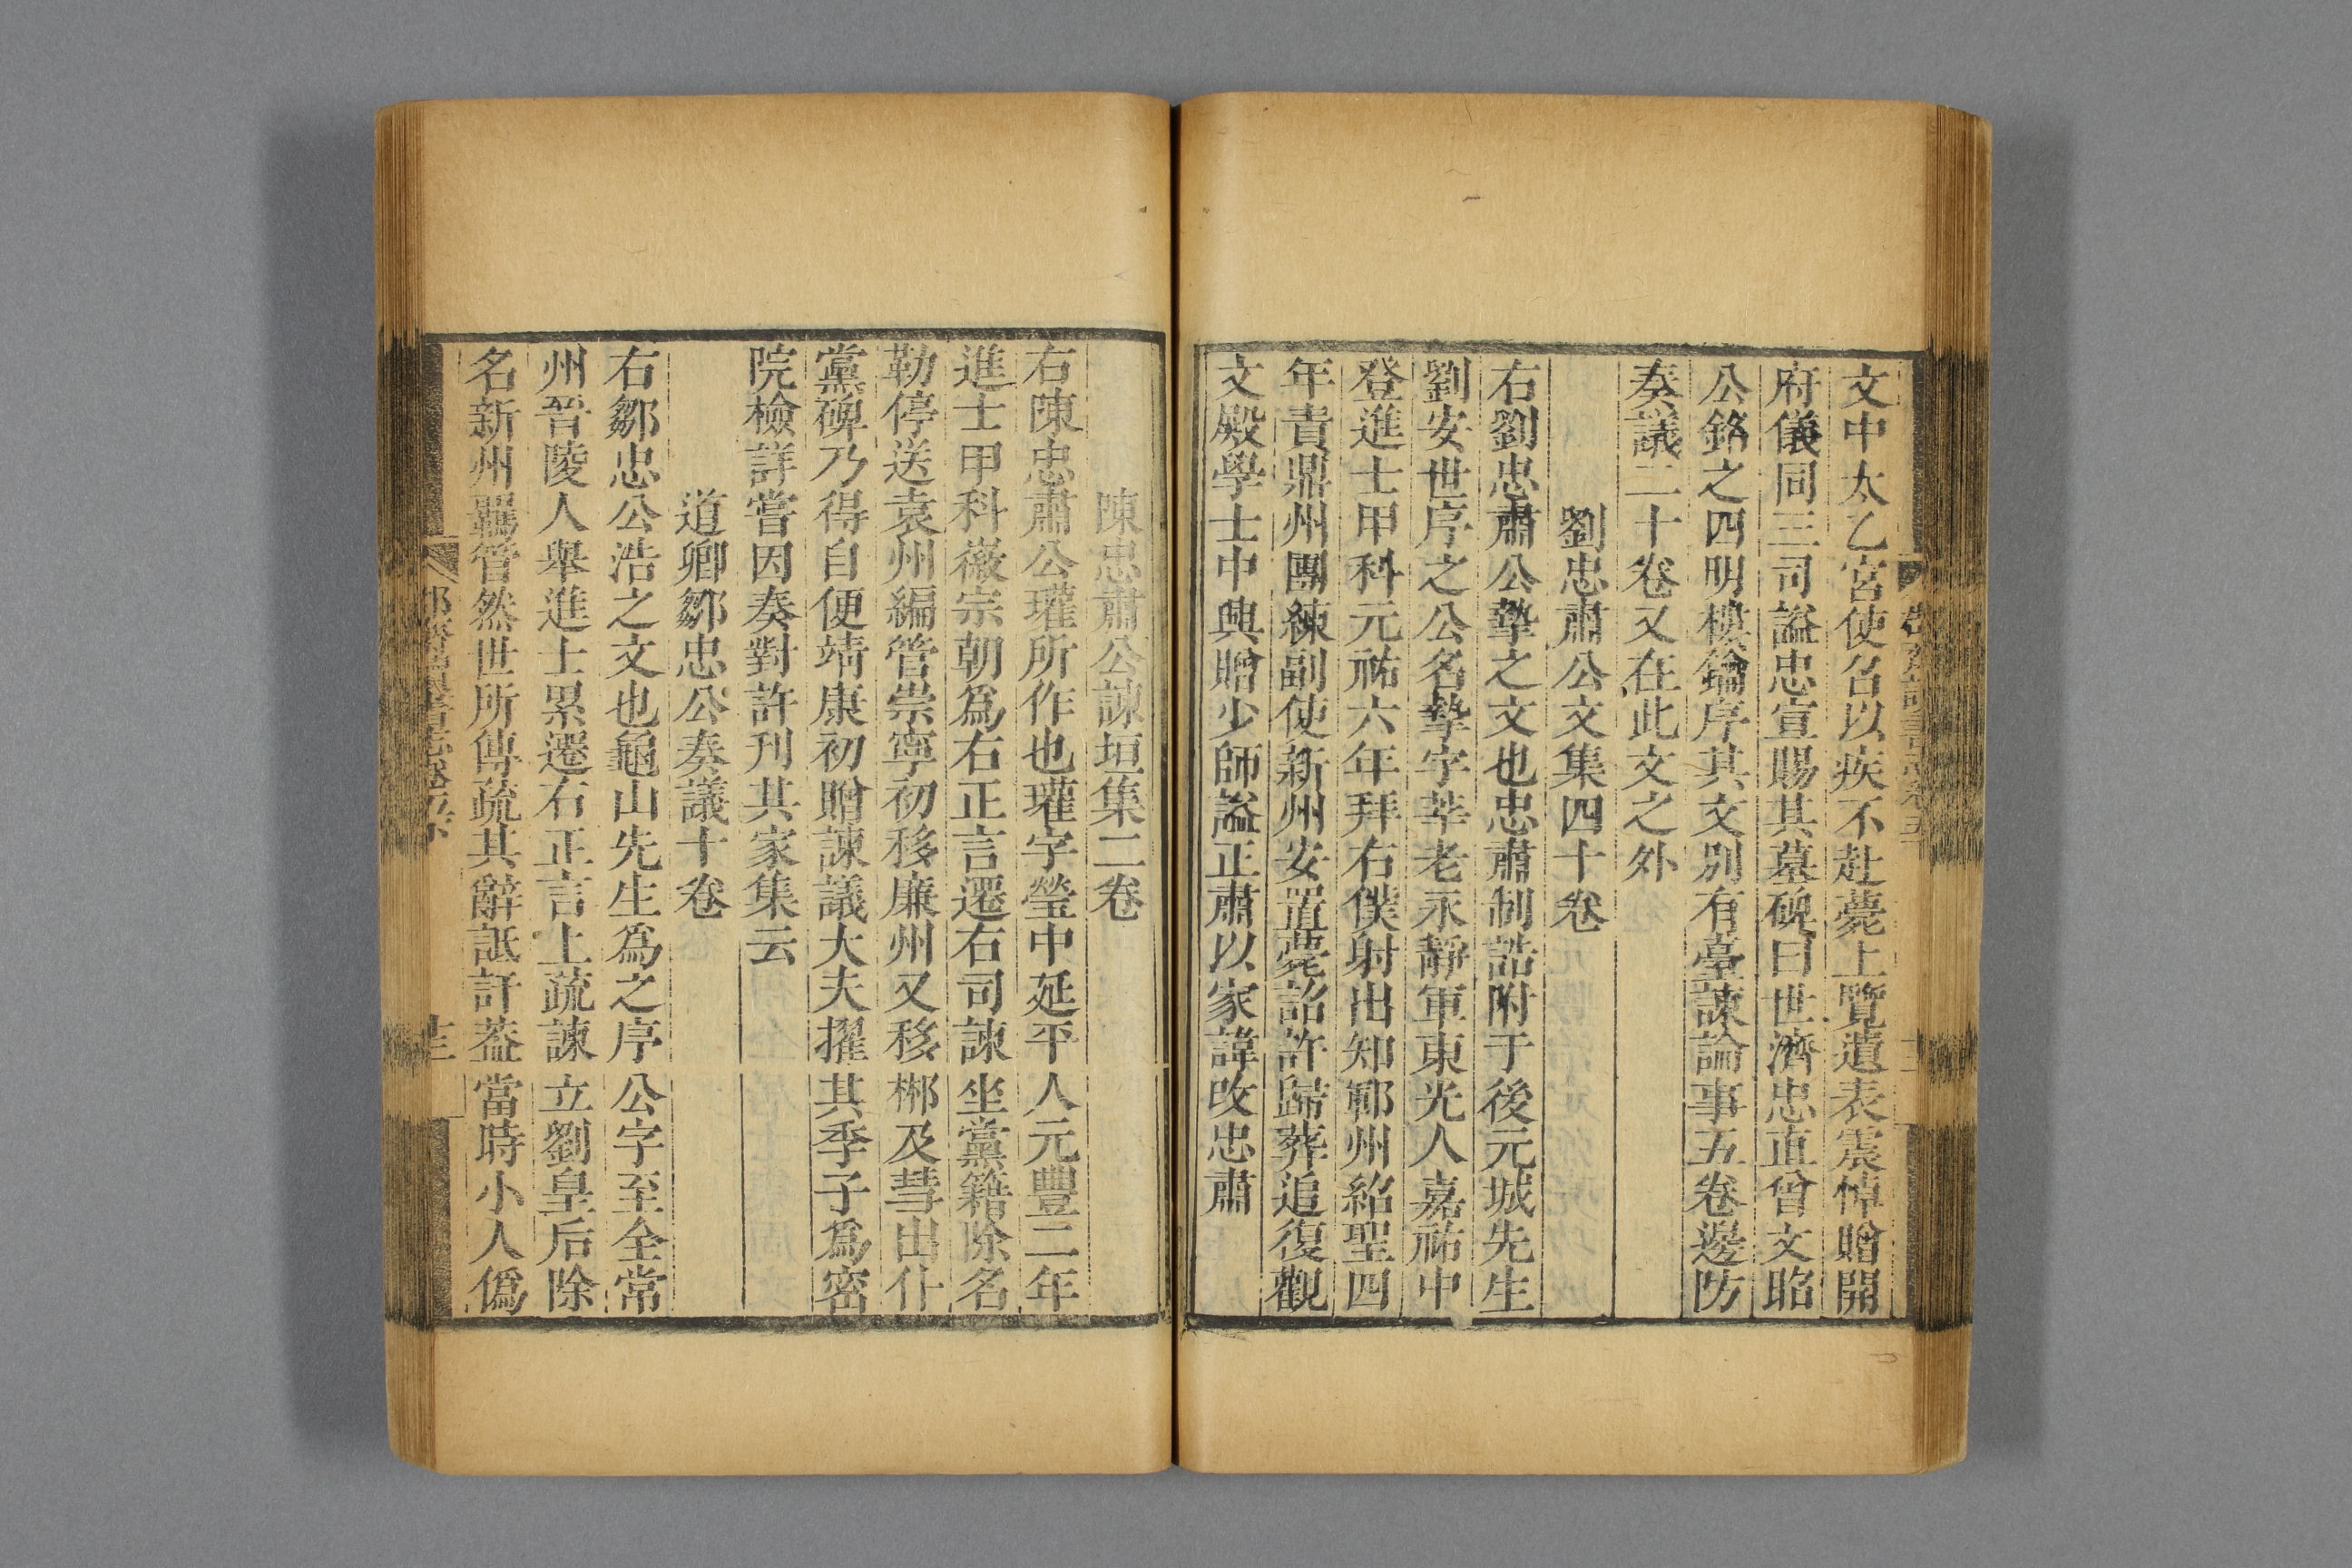 文中太乙宮使召以疾不赴薨上覽遺表震悼贈開
府儀同三司謚忠宣賜其墓碑曰世濟忠直曾文昭
公銘之四明樓鑰序其文別有臺諫論事五卷邊防
奏議二十卷又在此文之外
劉忠肅公文集四十卷
右劉忠肅公摯之文也忠肅制誥附于後元城先生
劉安世序之公名摯字莘老永靜軍東光人嘉祐中
登進士甲科元祐六年拜右僕射出知鄆州紹聖四
年責鼎州團練副使新州安置薨詔許歸葬追復觀
文殿學士中興贈少師謚正肅以家諱改忠肅
陳忠肅公諫垣集二卷
右陳忠肅公瓘所作也瓘字瑩中延平人元豐二年
進士甲科徽宗朝爲右正言遷右司諫坐黨籍除名
勒停送袁州編管崇寧初移廉州又移郴及彗出仆
黨碑乃得自便靖康初贈諫議大夫擢其季子爲密
院檢詳嘗因奏對許刊其家集云
道卿鄒忠公奏議十卷
右鄒忠公浩之文也龜山先生爲之序公字至全常
州晉陵人舉進士累遷右正言上疏諫立劉皇后除
名新州羈管然世所傳疏其辭詆訐葢當時小人僞